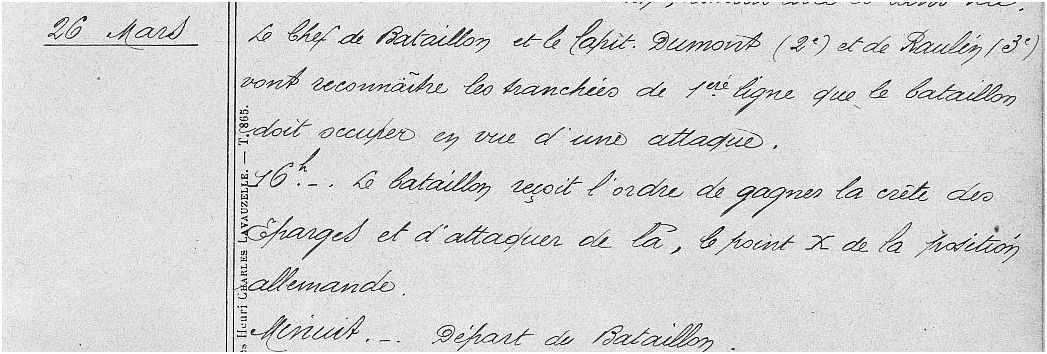 26 Mars
Le Chef de Bataillon et le Capit. Dumont (2e) et de Raulin (3e)
vont reconnaître les tranchées de 1ère ligne que le bataillon
doit occuper en vue d'une attaque.
16h.-. Le bataillon reçoit l'ordre de gagner la crête des
Eparges et d'attaquer de là, le point X de la position
allemande.
Minuit.-. Départ du Bataillon.
Henri CHARLES LAVAUZELLE. — T. 865.